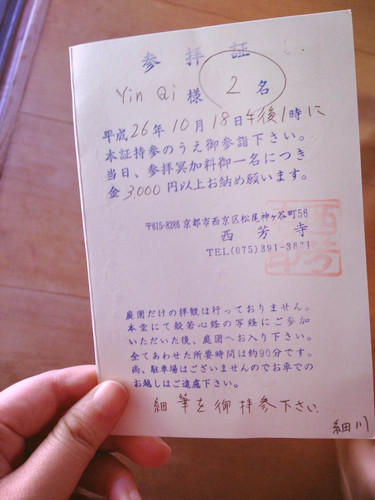 参拝証
Yin Qi 様 2 名
平成26年10月18日午後1時に
本証持参のうえ御参詣下さい。
当日、参拝冥加料御一名につき
金3,000円以上お納め願います。
〒615-8286 京都市西京区松尾神ヶ谷町56
西芳寺
TEL(075)391-3631
庭園だけの拝観は行っておりません。
本堂にて般若心経の写経にご参加
いただいた後、庭園へお入り下さい。
全てあわせた所要時間は約90分です。
尚、駐車場はございませんのでお車での
お越しはご遠慮下さい。
細筆を御持参下さい。
細川